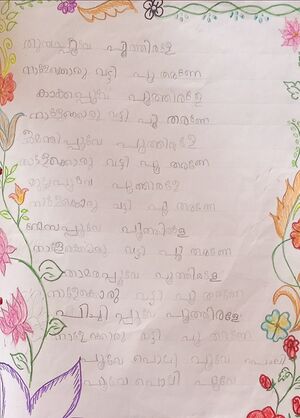 തുമ്പപ്പൂവേ പൂത്തിരളേ
നാളേക്കൊരു വട്ടി പൂ തരണേ
കാക്കപ്പൂവേ പൂത്തിരളേ
നാളേക്കൊരു വട്ടി പൂ തരണേ
പൂവേ പൂത്തിരളേ
നാളേക്കൊരു വട്ടി പൂ തരണേ
മുല്ലപ്പൂവേ പൂത്തിരളേ
നാളേക്കൊരു വട്ടി പൂ തരണേ
പൂത്തിരളേ
നാളേക്കൊരു വട്ടി പൂ തരണേ
താമരപ്പൂവേ പൂത്തിരളേ
നാളേക്കൊരു വട്ടി പൂ തരണേ
പിച്ചിപ്പൂവേ പൂത്തിരളേ
നാളേക്കൊരു വട്ടി പൂ തരണേ
പൂവേ പൊലി പൂവേ പൊലി
പൂവേ പൊലി പൂവേ